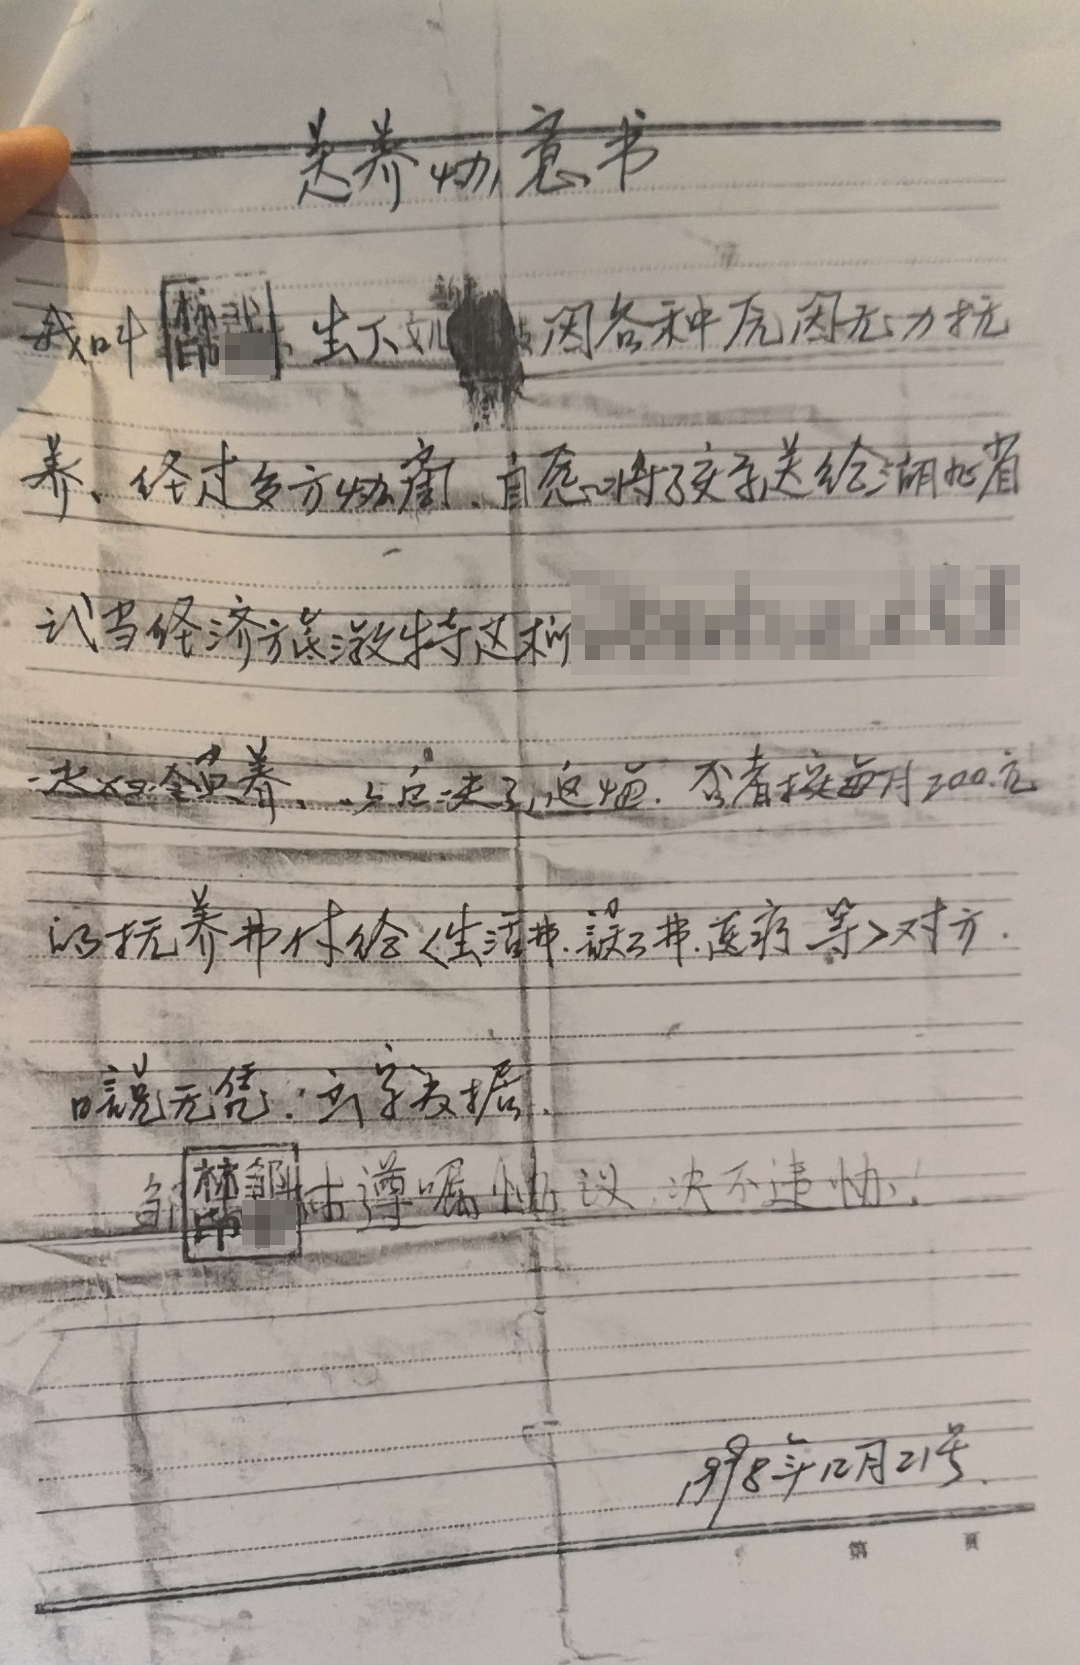 送养协意书
我叫 林邹印 生下女儿 因各种原因无力抚
养、经过多方协商、自愿将子交系送给湖北省
武当经济旅激特区柳
一次 养、以后决不返悔.否者按每月200.元
的抚养费付给<生活费.误工费.医疗等>对方.
口说无凭.立字为据.
邹 林邹印 林遵嘱协议.决不违协.
1998年12月21号.
第 页